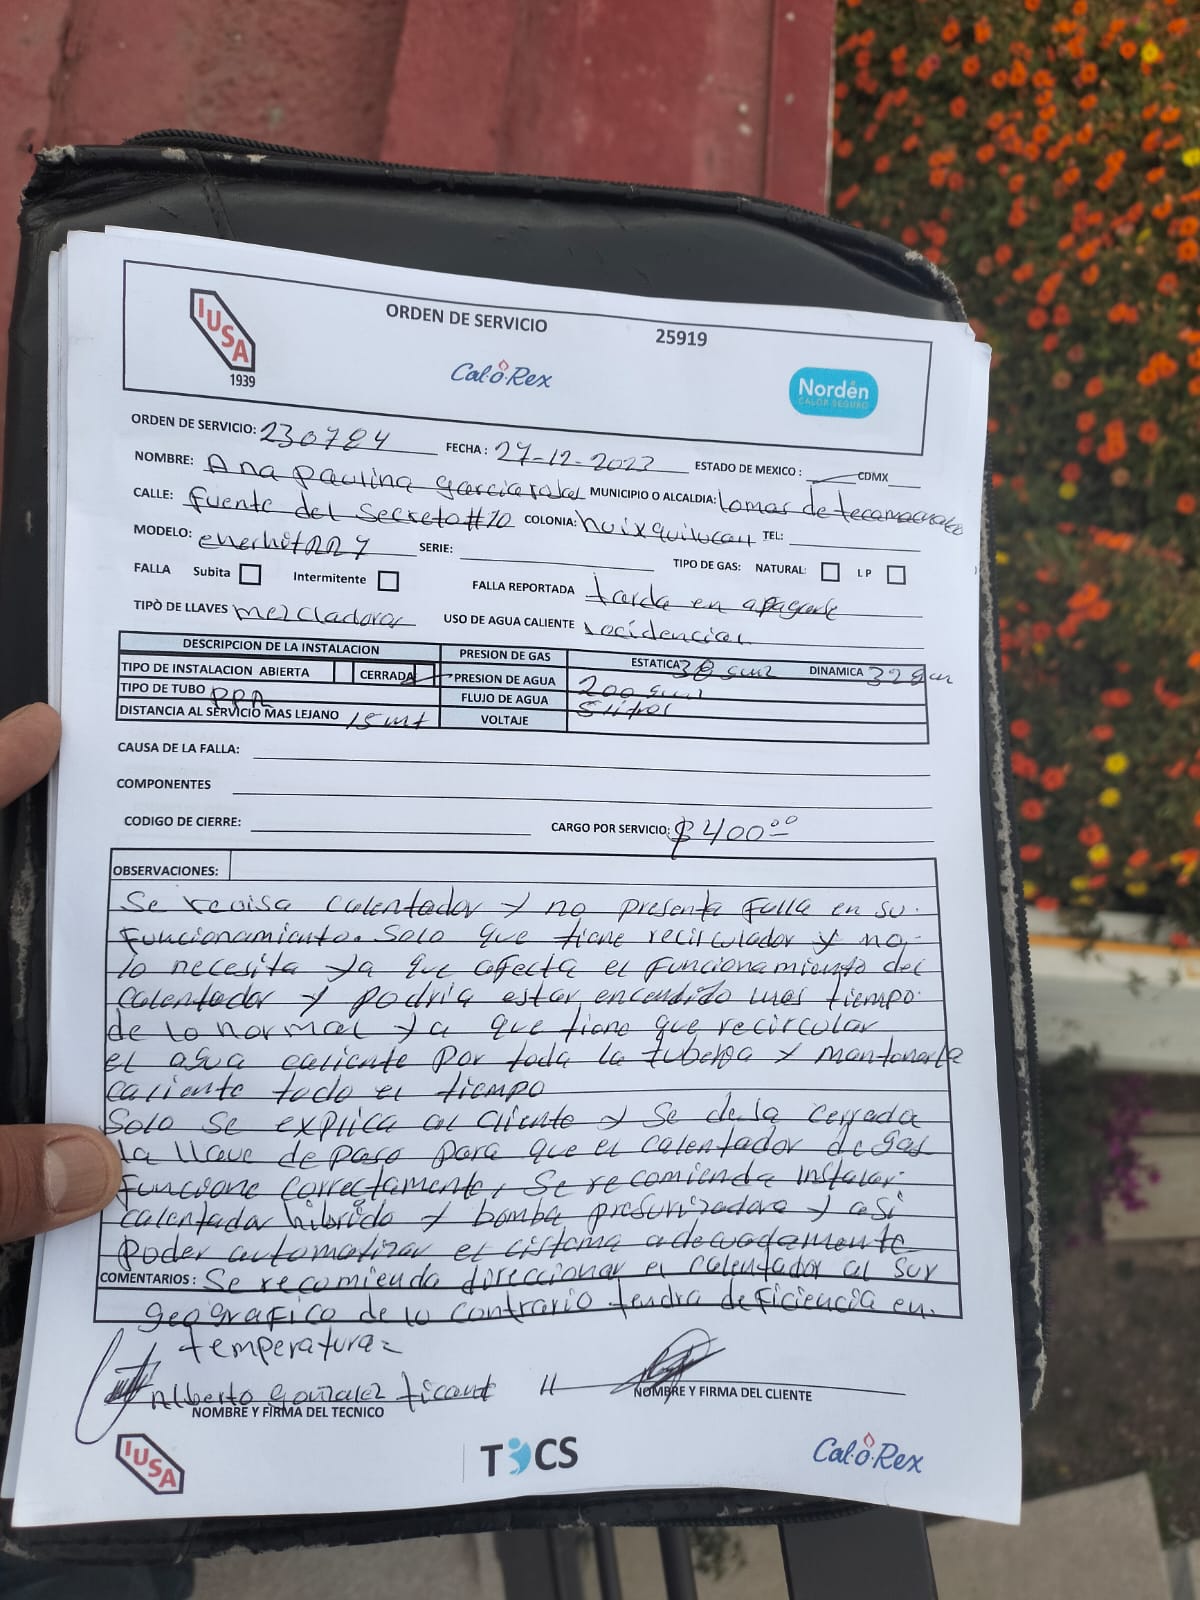 IUSA
1939
ORDEN DE SERVICIO 25919
Cal-o-Rex
Nordén
CALOR SEGURO
ORDEN DE SERVICIO: 230784 FECHA: 27-12-2023 ESTADO DE MEXICO: CDMX
NOMBRE: Ana Paulina Garcia MUNICIPIO O ALCALDIA: Lomas de tecamachalco
CALLE: Fuente del Secreto #10 COLONIA: huixquilucan TEL:
MODELO: SERIE: TIPO DE GAS: NATURAL: L P
FALLA Subita Intermitente FALLA REPORTADA tarda en apagarse
TIPÒ DE LLAVES mezcladoras USO DE AGUA CALIENTE
DESCRIPCION DE LA INSTALACION PRESION DE GAS ESTATICA DINAMICA
TIPO DE INSTALACION ABIERTA CERRADA PRESION DE AGUA
TIPO DE TUBO PPR FLUJO DE AGUA 5 litros
DISTANCIA AL SERVICIO MAS LEJANO 15 mt VOLTAJE
CAUSA DE LA FALLA:
COMPONENTES
CODIGO DE CIERRE: CARGO POR SERVICIO: $400.00
OBSERVACIONES:
Se revisa calentador y no presenta falla en su
funcionamiento. Solo que tiene recirculador y no
lo necesita ya que afecta el funcionamiento del
calentador y podria estar encendido mas tiempo
de lo normal ya que tiene que recircular
el agua caliente por toda la tuberia y mantenerla
caliente todo el tiempo
Solo se explica al cliente y se deja cerrada
la llave de paso para que el calentador de gas
funcione correctamente, Se recomienda instalar
calentador hibrido y bomba presurizadora y asi
poder automatizar el cistema adecuadamente
COMENTARIOS: Se recomienda direccionar el calentador al sur
geografico de lo contrario tendra deficiencia en
temperatura
Alberto Gonzalez
NOMBRE Y FIRMA DEL TECNICO NOMBRE Y FIRMA DEL CLIENTE
IUSA
TICS
Cal-o-Rex